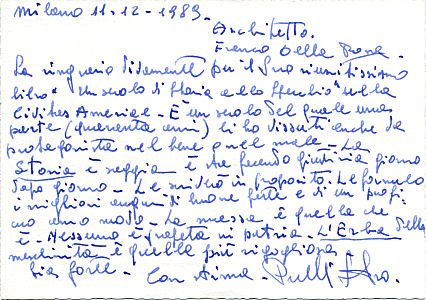 Milano 11-12-1989.
Architetto.
Franco Della Rosa -
La ringrazio vivamente per il Suo riuscitissimo
libro "Un secolo di Storia e allo Specchio" sulla
Civitas Americae - È un secolo del quale una
parte (quaranta anni) li ho vissuti anche da
protagonista nel bene e nel male - La
Storia è saggia e sta facendo giustizia giorno
dopo giorno - Le scriverò in proposito. Le formulo
i migliori auguri di buone feste e di un
anno nuovo - La messa è quella che
è - Nessuno è profeta in patria - L'Erba della
meschinità è quella più rigogliosa
Sia forte - Con stima -